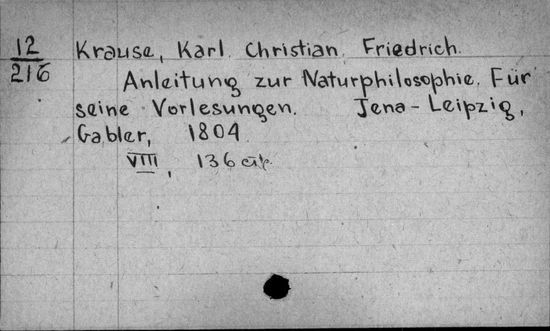 12
216
Krause, Karl Christian Friedrich.
Anleitung zur Naturphilosophie. Für
seine Vorlesungen. Jena-Leipzig,
Gabler, 1804
VIII, 136 стр.